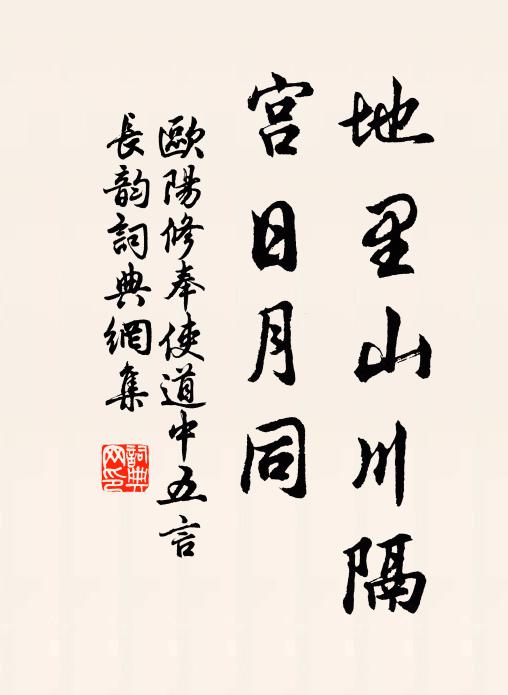 地里山川隔
宫日月同
歐陽修奉使道中五言
長韵詞典網集
詞典
网印